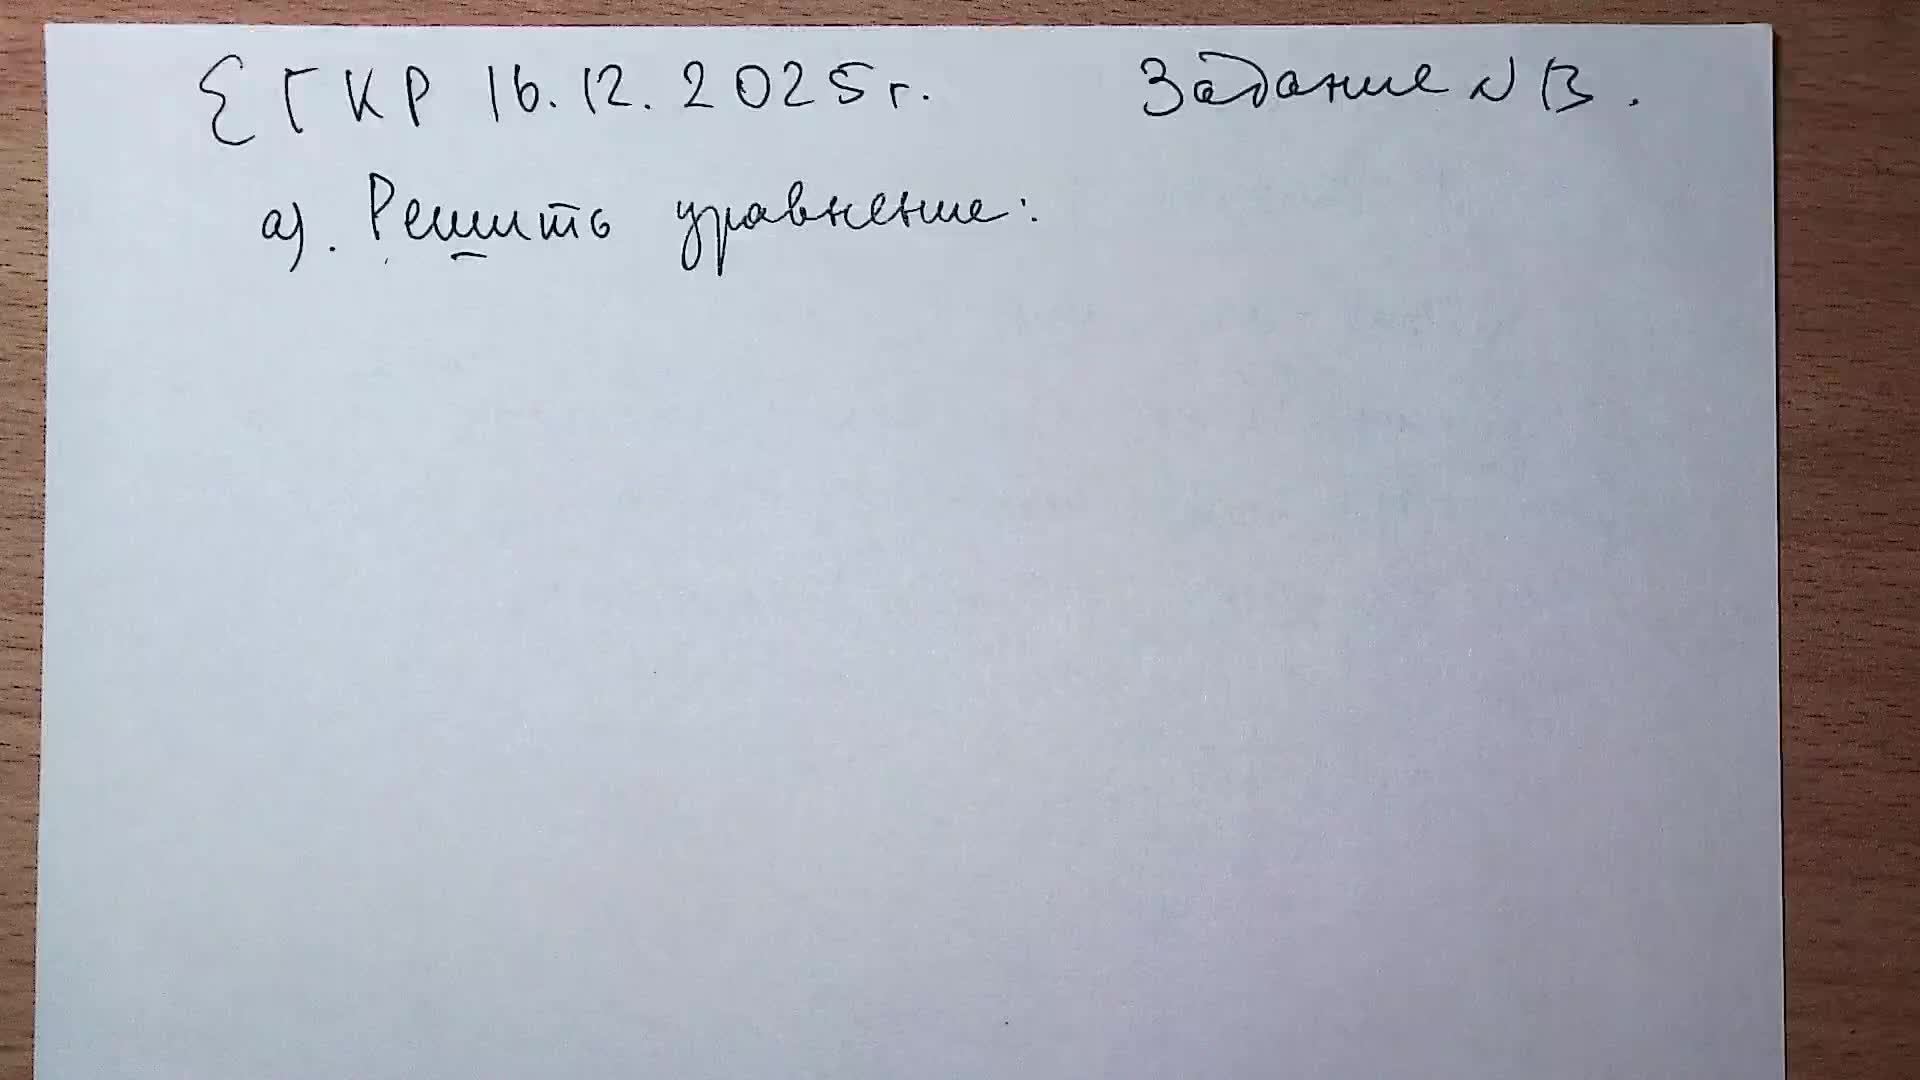 ЕГКР 16.12.2025г. Задание N 13.
а). Решить уравнение: